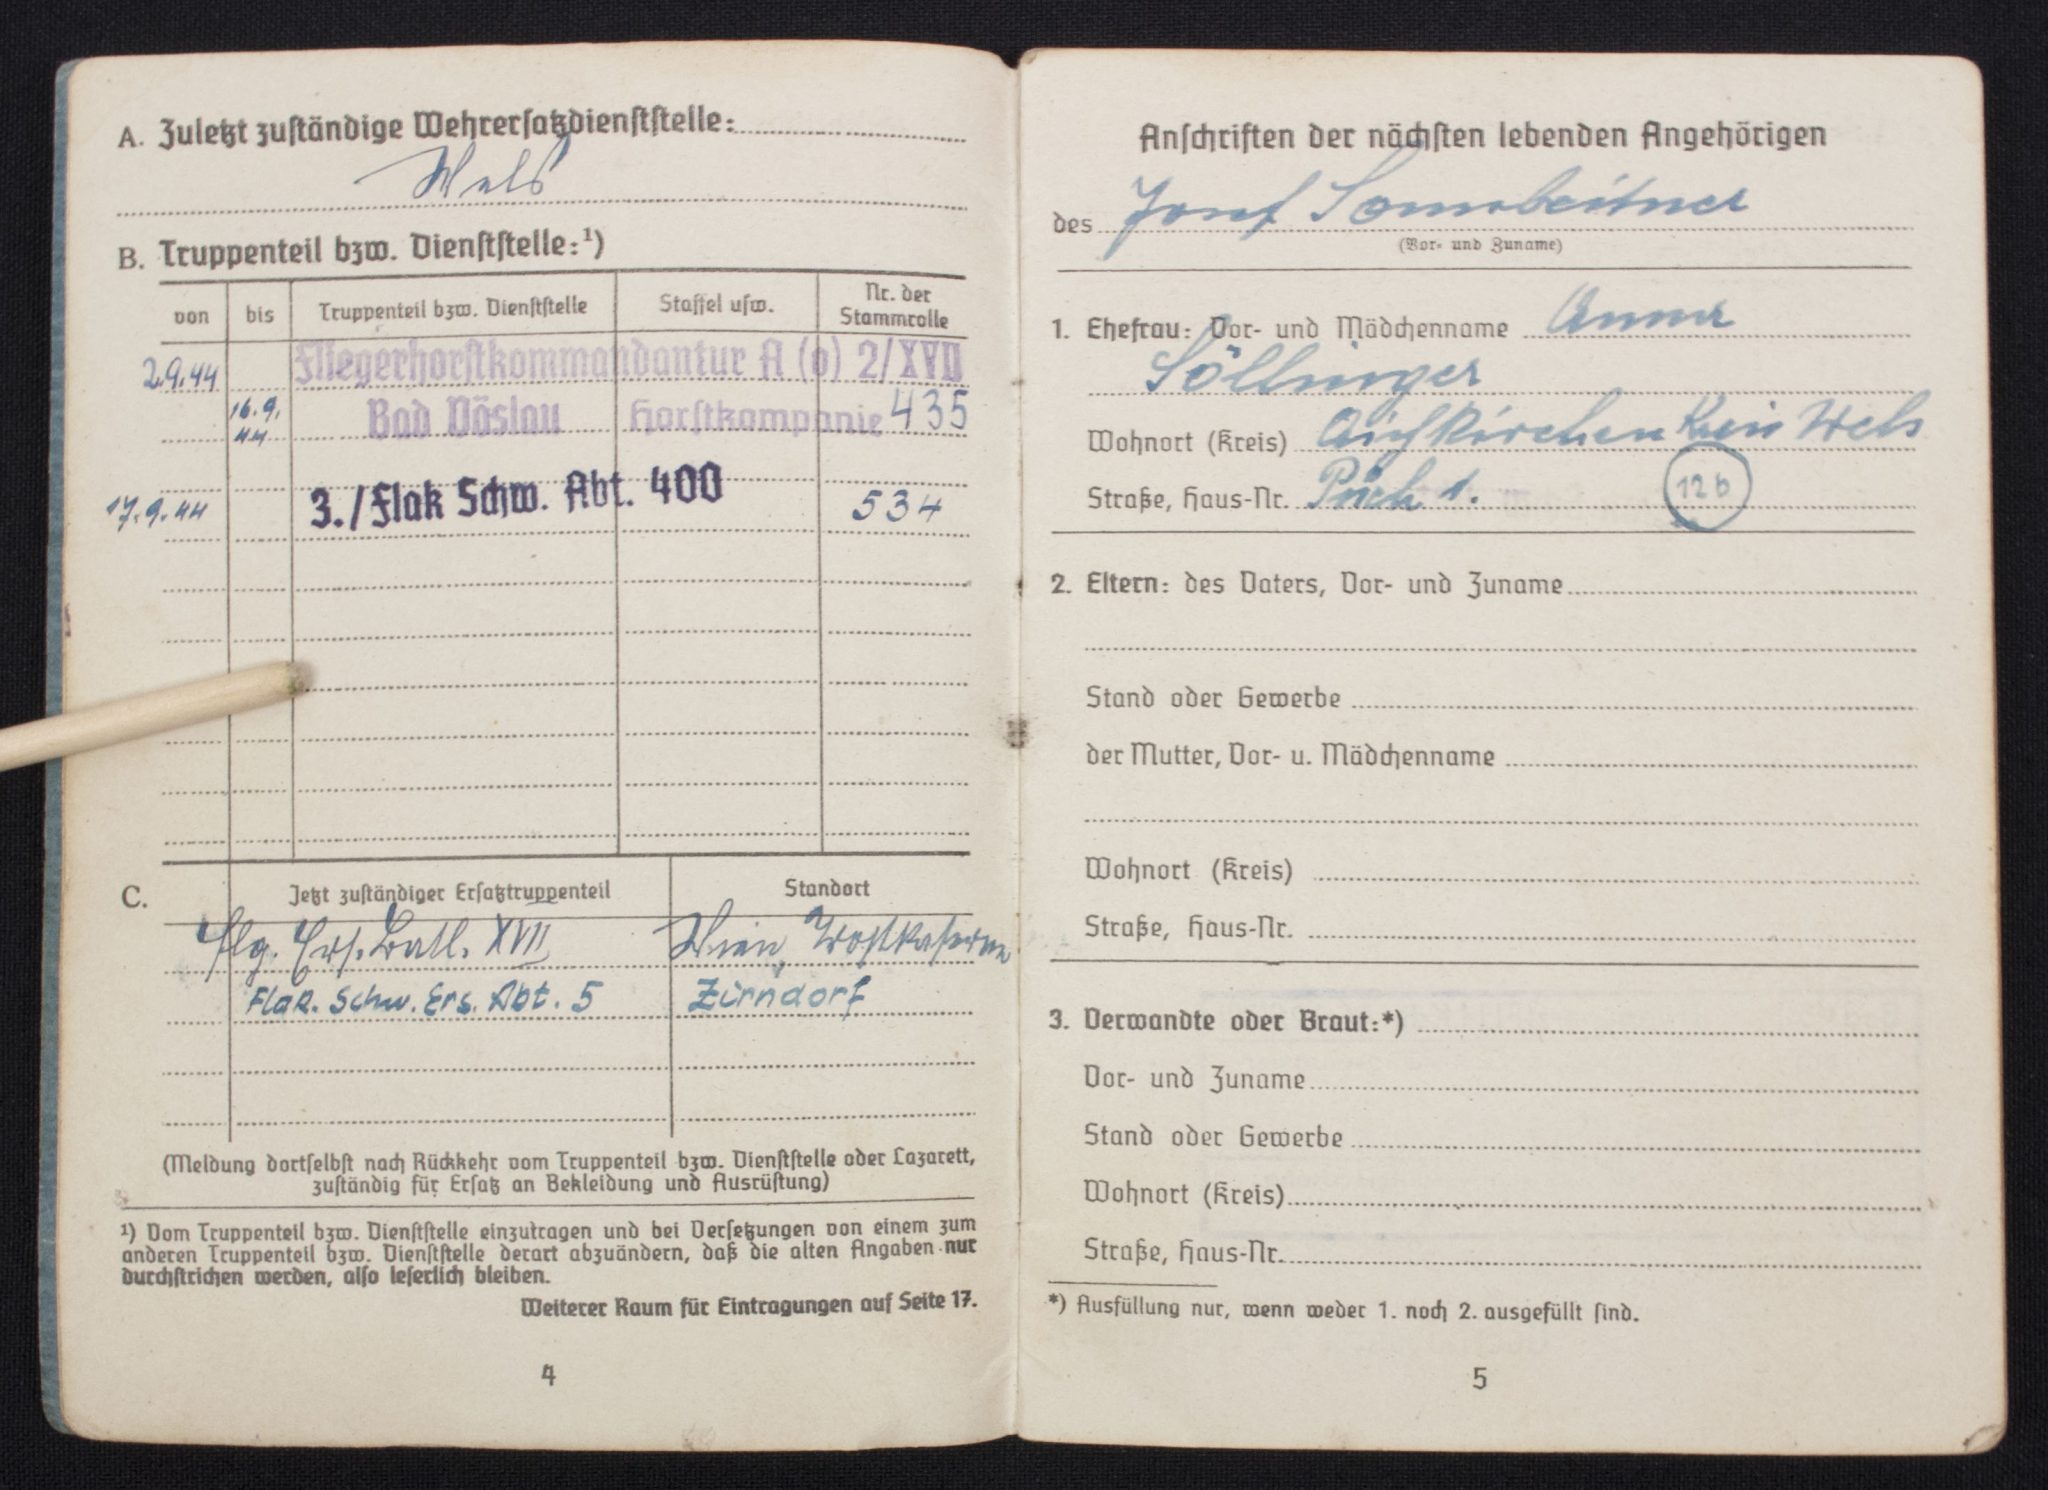 A. Zuletzt zuständige Wehrersatzdienststelle:
Wels
B. Truppenteil bzw. Dienststelle:¹)
von bis Truppenteil bzw. Dienststelle Staffel usw. Nr. der Stammrolle
2.9.44 Fliegerhorstkommandantur A (o) 2/XVII
16.9.44 Bad Vöslau Horstkompanie 435
17.9.44 3./Flak Schw. Abt. 400 534
C. Jetzt zuständiger Ersatztruppenteil Standort
Flg. Ers. Batl. XVII Wien,
Flak. Schw. Ers. Abt. 5 Zirndorf
(Meldung dortselbst nach Rückkehr vom Truppenteil bzw. Dienststelle oder Lazarett,
zuständig für Ersatz an Bekleidung und Ausrüstung)
¹) Vom Truppenteil bzw. Dienststelle einzutragen und bei Versetzungen von einem zum
anderen Truppenteil bzw. Dienststelle derart abzuändern, daß die alten Angaben nur
durchstrichen werden, also leserlich bleiben.
Weiterer Raum für Eintragungen auf Seite 17.
4
Anschriften der nächsten lebenden Angehörigen
des Josef
(Vor- und Zuname)
1. Ehefrau: Vor- und Mädchenname Anna
Söllinger
Wohnort (Kreis) Aichkirchen Kreis Wels
Straße, Haus-Nr. Püch 1. 12b
2. Eltern: des Vaters, Vor- und Zuname
Stand oder Gewerbe
der Mutter, Vor- u. Mädchenname
Wohnort (Kreis)
Straße, Haus-Nr.
3. Verwandte oder Braut:*)
Vor- und Zuname
Stand oder Gewerbe
Wohnort (Kreis)
Straße, Haus-Nr.
*) Ausfüllung nur, wenn weder 1. noch 2. ausgefüllt sind.
5